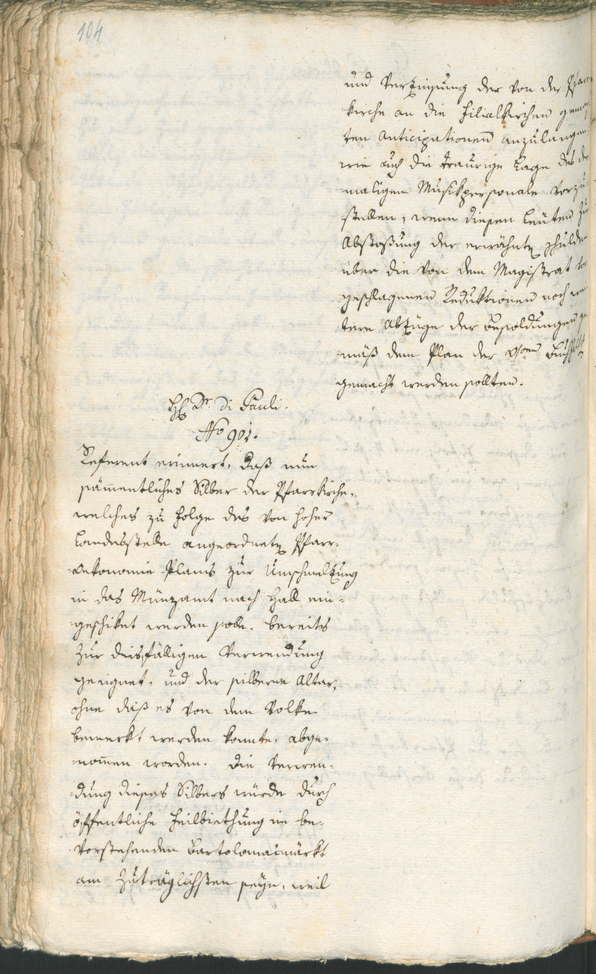 104
und Verzinsung der von der Pfarr
kirche an die Filialkirchen gemach
ten Anticipationen anzulangen
wie auch die traurige Lage des der
maligen Musikpersonale vorzu
stellen, wenn diesen Leuten zu
Abstoßung der erwähnten Schulden
über die von dem Magistrat vor
geschlagenen Reduktionen noch wei
tere Abzüge der Besoldungen ge
mäß dem Plan der Buchhalt
gemacht werden sollten.
HE Dr di Pauli.
No 901.
Referent erinnert, daß nun
sämentliches Silber der Pfarrkirche,
welches zu Folge des von hoher
Landesstelle angeordneten Pfarr-
Oekonomie Plans zur Umschmelzung
in das Münzamt nach Hall ein-
geschikt werden solle, bereits
zur diesfälligen Verwendung
geeignet, und der silberne Altar,
ohne daß es von dem Volke
bemerkt werden konnte, abge-
nom̅en worden. Die Verwen-
dung dieses Silbers würde durch
öffentliche Feilbiethung im be-
vorstehenden Bartolomaimarkt
am zuträglichsten seyn, weil